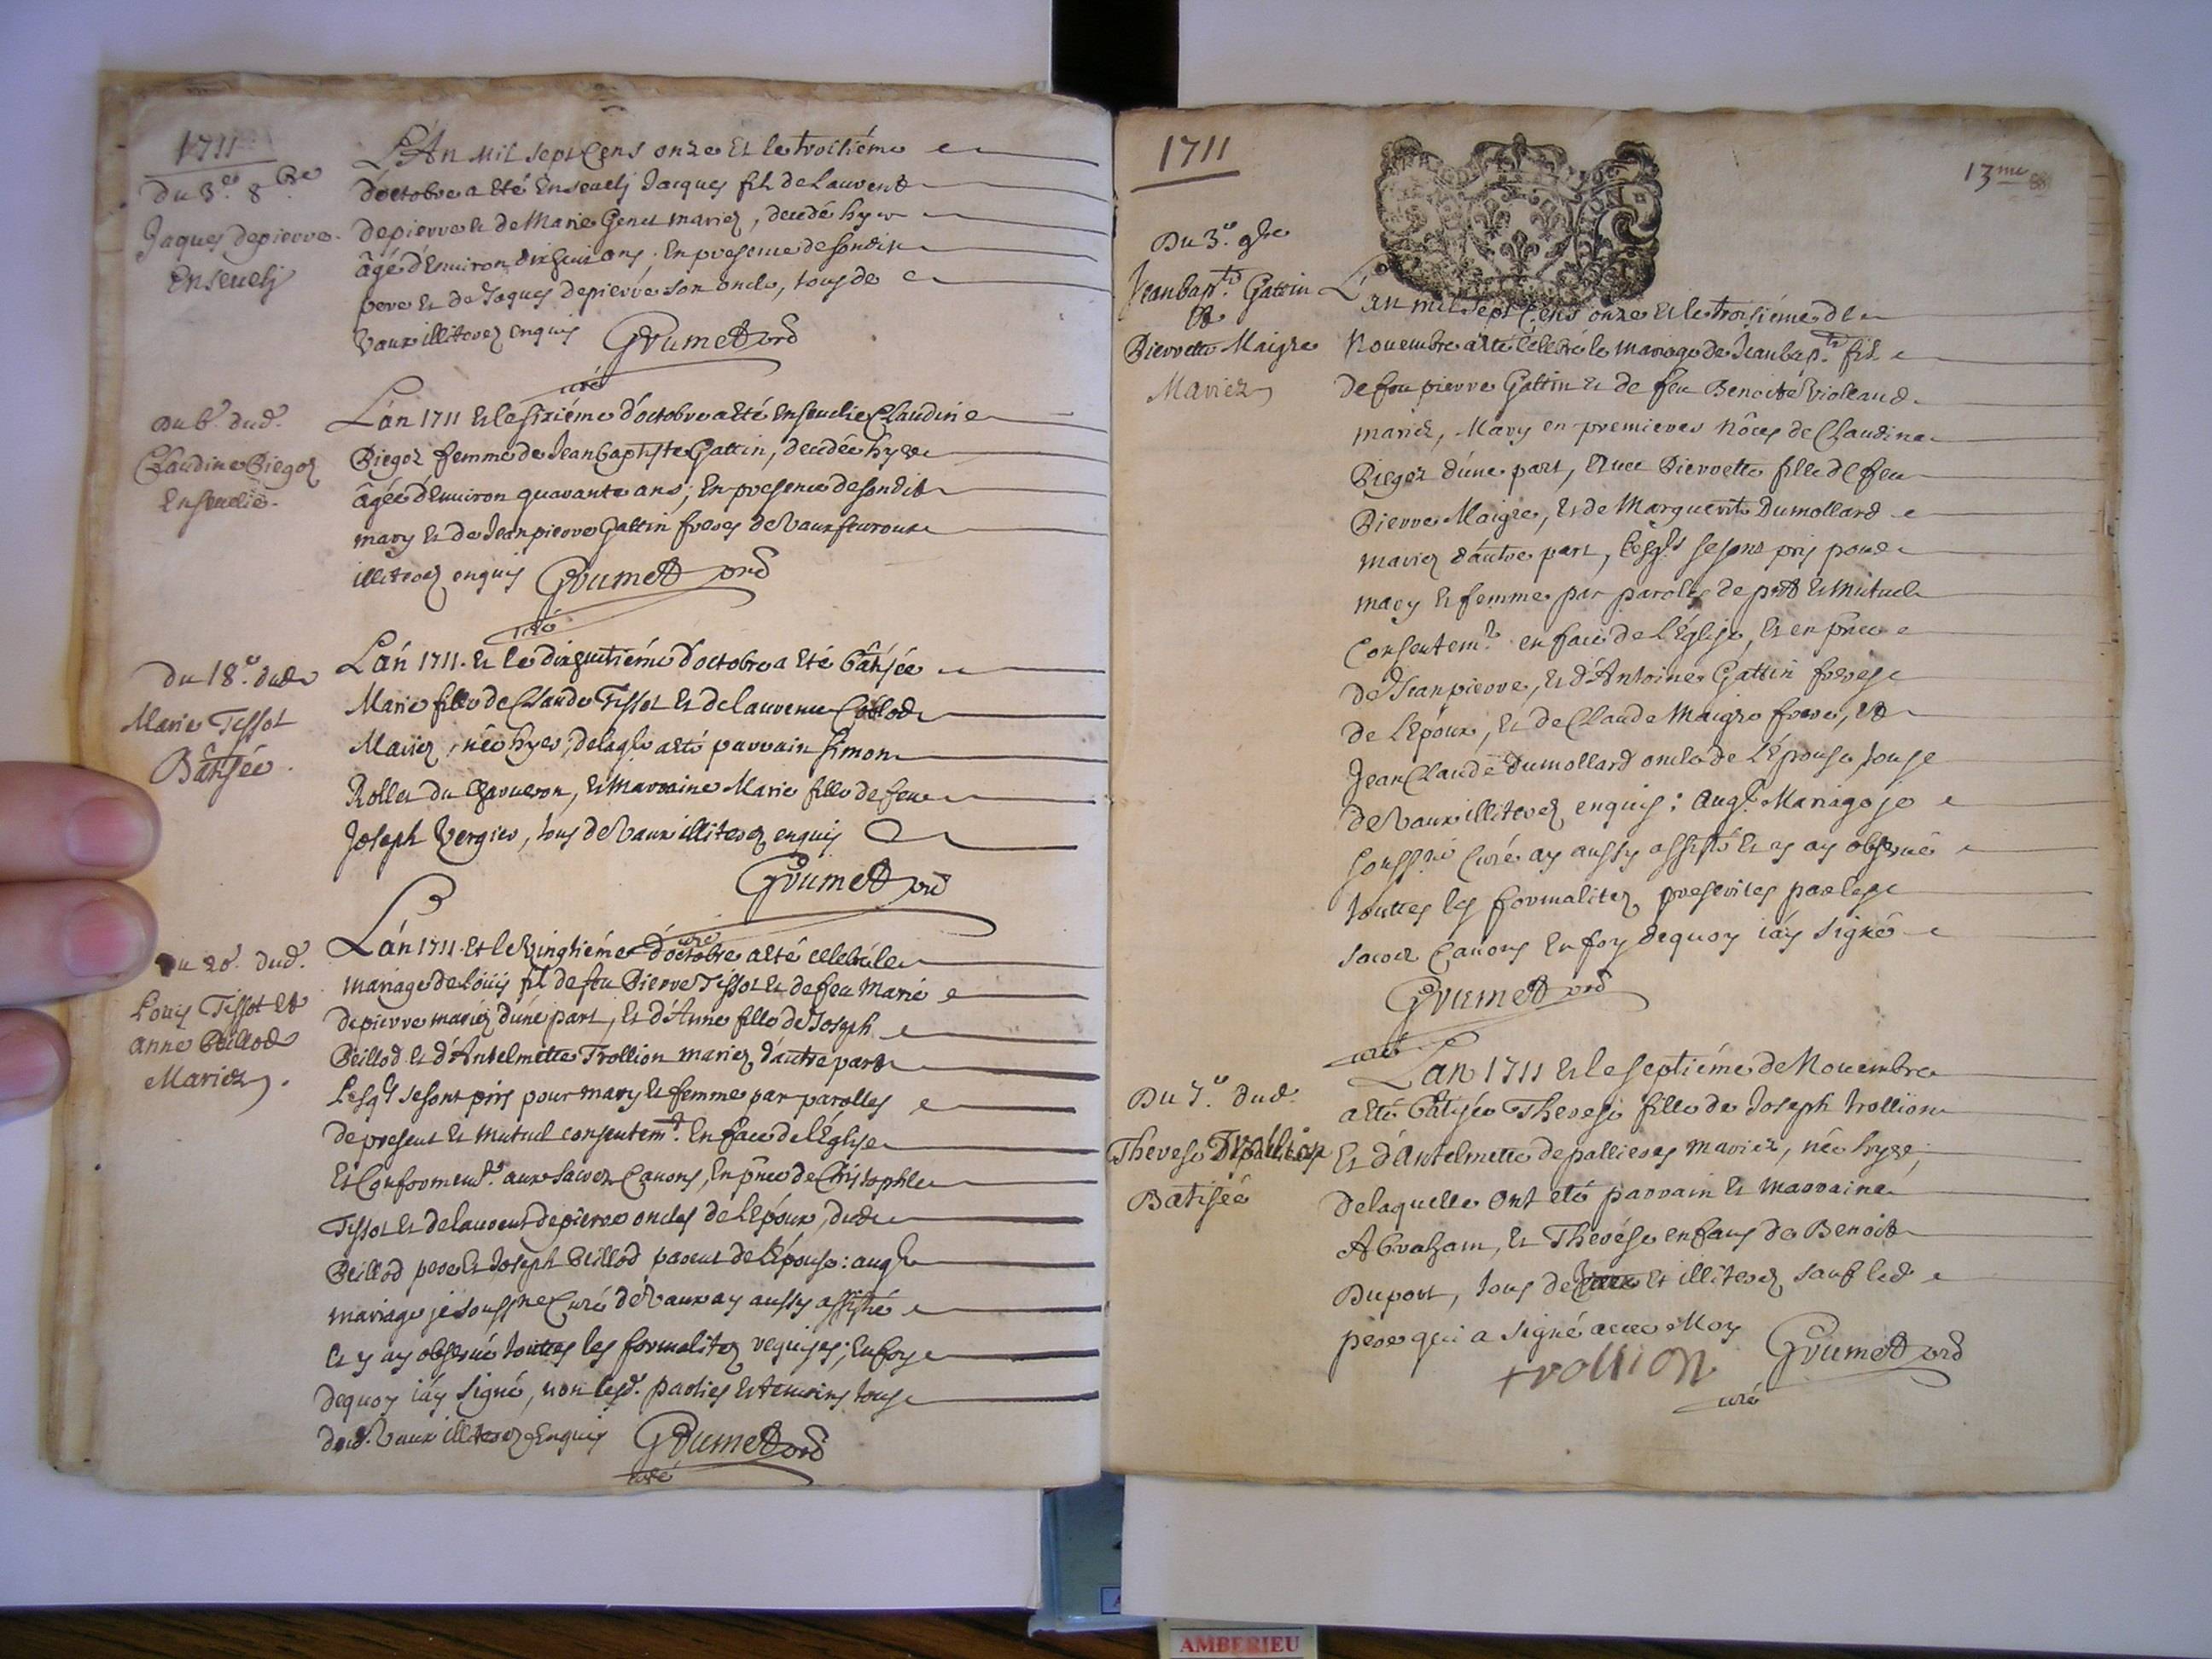 1711
Du 3.e 8.bre
Jaques depierre
Enseuely
L'An mil sept Cens onze Et le troisiéme
d'octobre a eté Enseuely Jacques fils de Laurend
depierre et de Marie Genet mariez, decedé hyer
âgé d'Enuiron dix huit ans, En presence de sondit
pere et de Jaques depierre son oncle, tous de
Vaux illiterez enquis Grumet
curé
Du 6.e dud.
Claudine Piegoz
Enseuelie.
L'an 1711 Et le sixiéme d'octobre a eté Enseuelie Claudine
Piegoz femme de Jean Baptiste Gattin, decedée hyer
âgée d'Enuiron quarante ans, En presence de sondit
mary et de Jean pierre Gattin freres de Vaux
illiterez enquis Grumet
curé
Du 18.e dud
Marie Tissot
Batisée.
L'an 1711. Et le dixhuitiéme d'octobre a eté batisée
Marie fille de Claude Tissot et de Laurence
Mariez, née hyer, de laqle a eté parrain Simon
Rollet du Charueron, et Marraine Marie fille de feu
Joseph Vergier, tous de Vaux illiterez enquis
Grumet
curé
Du 20.e dud.
Louis Tissot et
anne Beillod
Mariez.
L'an 1711. Et le Vingtiéme d'octobre a eté celebré le
mariage de Loüis fil de feu Pierre Tissot et de feu Marie
depierre mariez d'une part, Et d'Anne fille de Joseph
Beillod et d'Antelmette Trollion mariez d'autre part
Lesqls se sont pris pour mary et femme par parolles
de present et mutuel consentemt. En face de l'Eglise
Et Conformemt. aux sacrez Canons, En pnce de Christophle
Tissot et de Laurent depierre oncles de l'Epoux, dud
Beillod pere et Joseph Beillod parent de l'épouse: auql
mariage je soussne Curé de Vaux ay aussy assisté
et y ay obserué touttes les formalitez requises, En foy
dequoy i'ay signé, non lesd. parties et temoins tous
dud. Vaux illiterez Enquis Grumet
curé
1711
13me
Du 3.e 9bre
Jean bapte. Gattin
et
Pierrette Maigre
Mariez
L'an mil sept Cens onze et le troisiéme de
Nouembre a eté celebré le mariage de Jean bapte. fils
de feu pierre Gattin et de feu Benoite Violland
mariez, Mary en premieres Nôces de Claudine
Piegoz d'une part, Auec Pierrette fille de feu
Pierre Maigre, et de Marguerite Dumollard
mariez d'autre part, lesqls se sont pris pour
mary et femme par parolles de pnt et mutuel
Consentemt. en face de L'Eglise, et en pnce
de Jean pierre, et d'Antoine Gattin freres
de L'époux, et de Claude Maigre frere, et
Jean Claude Dumollard oncle de L'épouse, tous
de Vaux illiterez enquis: auql Mariage je
soussné Curé ay aussy assisté et y ay obserué
touttes les formalitez prescrites par les
sacrez Canons En foy dequoy i'ay signé
Grumet
curé
Du 7.e dud.
Therese Trollion
Batisée
L'an 1711 Et le septiéme de Nouembre
a eté batisée Therese fille de Joseph trollion
Et d'Antelmette depallieres mariez, née hyer;
de laquelle ont eté parrain et marraine
Abraham, et Therése enfans de Benoit
Duport, tous de Vaux et illiterez sauf led
pere qui a signé auec Moy
trollion Grumet
curé
AMBERIEU